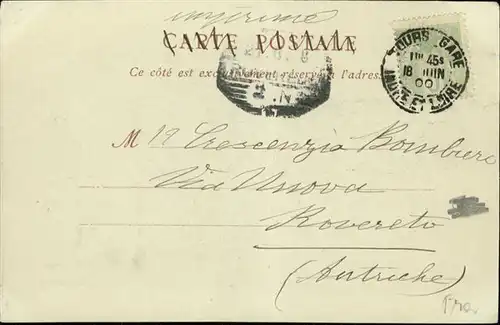 imprimé
CARTE POSTALE
Ce côté est exclusivement réservé à l'adresse
TOURS GARE
18 JUIN
00
INDRE ET LOIRE
M
Crescenzio
Via Nuova
Rovereto
(Autriche)